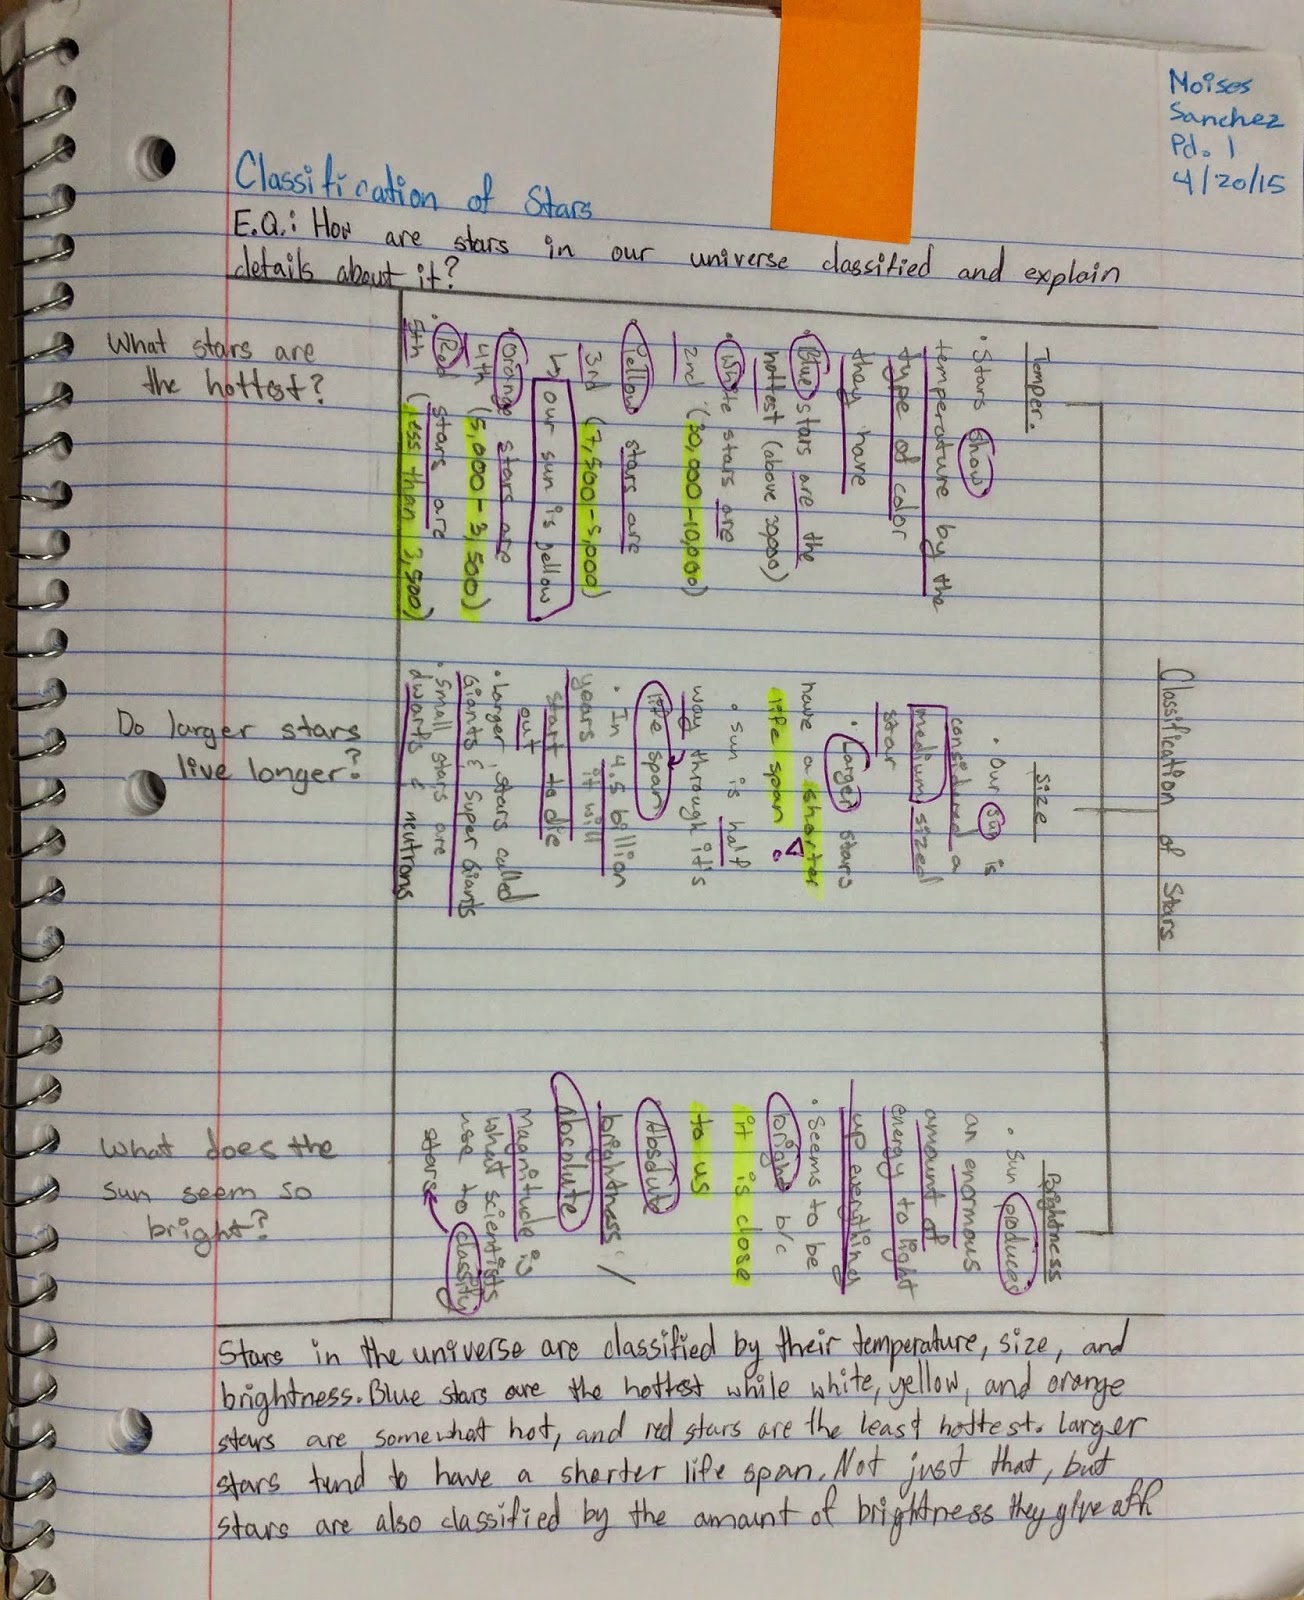 Moises
Sanchez
Pd. 1
4/20/15
Classification of Stars
E.Q.: How are stars in our universe classified and explain
details about it?
What stars are
the hottest?
Do larger stars
live longer?
What does the
sun seem so
bright?
Classification of Stars
Temper.
• Stars show
temperature by the
type of color
they have
• Blue stars are the
hottest (above 20,000)
• White stars are
2nd (20,000-10,000)
• Yellow stars are
3rd (7,500-5,000)
↳ our sun is yellow
• Orange stars are
4th (5,000-3,500)
• Red stars are
5th (less than 3,500)
Size
• Our Sun is
considered a
medium sized
star
• Larger stars
have a shorter
life span.
• Sun is half
way through it's
life span
• In 4.5 billion
years it will
start to die
out
• Larger stars called
Giants & Super Giants
• Small stars are
dwarfs & neutrons
Brightness
• Sun produces
an enormous
amount of
energy to light
up everything
• Seems to be
bright b/c
it is close
to us
Absolute
brightness /
Absolute
Magnitude is
what scientists
use to classify
stars
Stars in the universe are classified by their temperature, size, and
brightness. Blue stars are the hottest while white, yellow, and orange
stars are somewhat hot, and red stars are the least hottest. Larger
stars tend to have a shorter life span. Not just that, but
stars are also classified by the amount of brightness they give off.